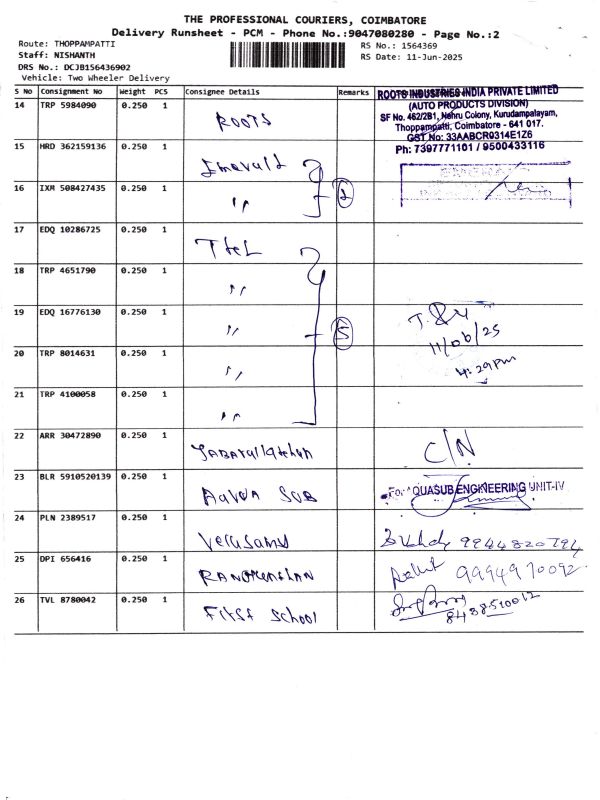 THE PROFESSIONAL COURIERS, COIMBATORE
Delivery Runsheet - PCM - Phone No.:9047080280 - Page No.:2
Route: THOPPAMPATTI
Staff: NISHANTH
DRS No.: DCJB15643690​2
Vehicle: Two Wheeler Delivery
RS No.: 1564369
RS Date: 11-Jun-2025
S No Consignment No Weight PCS Consignee Details Remarks
ROOTS INDUSTRIES INDIA PRIVATE LIMITED
(AUTO PRODUCTS DIVISION)
SF No. 462/2B1, Nehru Colony, Kurudampalayam,
Thoppampatti, Coimbatore - 641 017.
GST No: 33AABCR0314E1Z6
Ph: 7397771101 / 9500433116
14 TRP 5984090 0.250 1 ROOTS
15 HRD 362159136 0.250 1 Emerald
16 IXM 508427435 0.250 1 "
2
17 EDQ 10286725 0.250 1
18 TRP 4651790 0.250 1 "
19 EDQ 16776130 0.250 1 " 5
11/06/25
4:29pm
20 TRP 8014631 0.250 1 "
21 TRP 4100058 0.250 1 "
22 ARR 30472890 0.250 1 C/N
23 BLR 5910520139 0.250 1 For QUASUB ENGINEERING UNIT-IV
24 PLN 2389517 0.250 1 Verusamy 9944820794
25 DPI 656416 0.250 1 9994970092
26 TVL 8780042 0.250 1 First School 8438510012